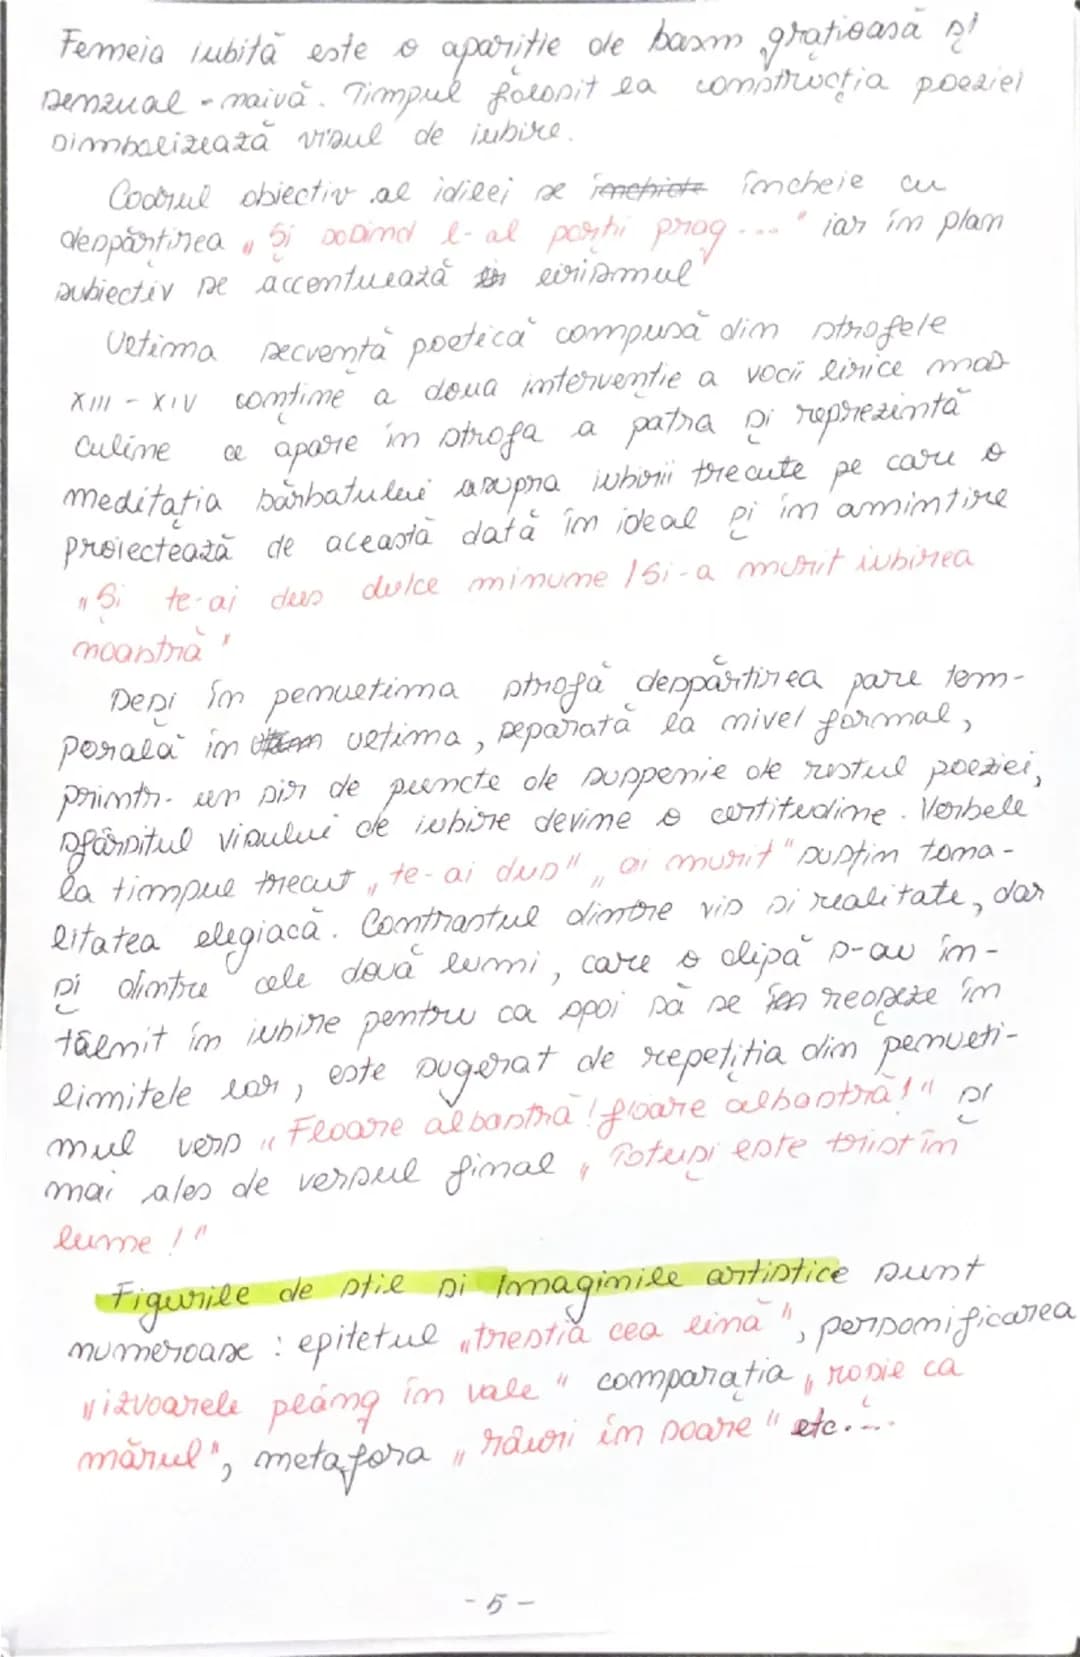 Femeia iubită este o apariție de basm grațioasă și
senzual - naivă. Timpul folosit la construcția poeziei
simbolizează visul de iubire.
Cadrul obiectiv al idilei se închiete încheie cu
despărțirea „Și sosind l-al porții prag...." iar în plan
subiectiv se accentuează lirismul
Ultima secvență poetică compusă din strofele
XIII - XIV conține a doua intervenție a vocii lirice mas
culine ce apare în strofa a patra și reprezintă
meditația bărbatului asupra iubirii trecute pe care o
proiectează de această dată în ideal și în amintire
„Și te-ai dus dulce minune / Si-a murit iubirea
noastră"
Deși în penultima strofă despărțirea pare tem-
porală în ultima, separată la nivel formal,
printr-un șir de puncte de suspensie de restul poeziei,
sfârșitul visului de iubire devine o certitudine. Verbele
la timpul trecut „te-ai dus" „ai murit" susțin tona-
litatea elegiacă. Contrastul dintre vis si realitate, dar
și dintre cele două lumi, care o clipă s-au în-
tâlnit în iubire pentru ca apoi să se reașeze în
limitele lor, este sugerat de repetiția din penulti-
mul vers „Floare albastră! floare albastră!" și
mai ales de versul final „Totuși este trist în
lume!"
Figurile de stil si Imaginile artistice sunt
numeroase : epitetul „trestia cea lină", personificarea
„izvoarele plâng în vale" comparația „roșie ca
mărul", metafora „râuri în soare" etc....
- 5 -